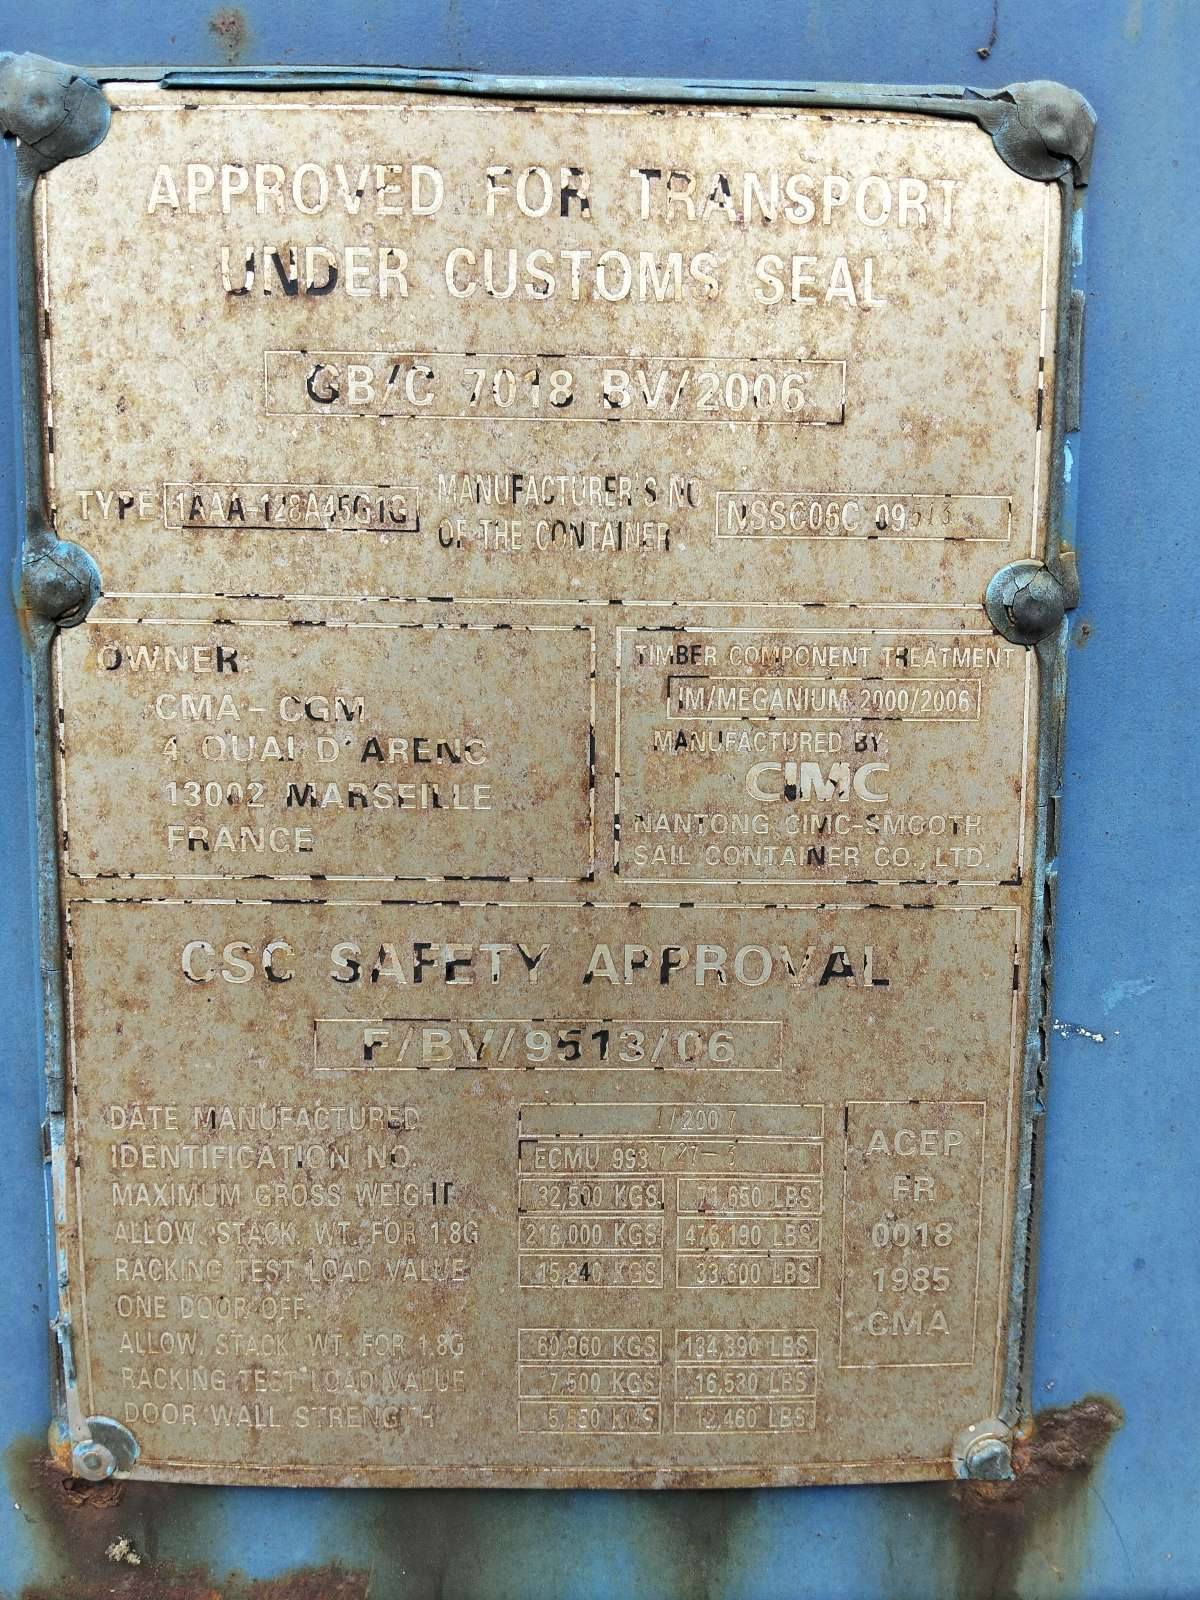 APPROVED FOR TRANSPORT
UNDER CUSTOMS SEAL
GB/C 7018 BV/2006
TYPE 1AAA-128A45G1G
MANUFACTURER'S NO
OF THE CONTAINER
NSSC06C 09
OWNER:
CMA-CGM
4 QUAI D'ARENC
13002 MARSEILLE
FRANCE
TIMBER COMPONENT TREATMENT
IM/MEGANIUM 2000/2006
MANUFACTURED BY:
CIMC
NANTONG CIMC-SMOOTH
SAIL CONTAINER CO.,LTD.
CSC SAFETY APPROVAL
F/BV/9513/06
DATE MANUFACTURED 1/2007
IDENTIFICATION NO. ECMU
MAXIMUM GROSS WEIGHT 32,500 KGS 71,650 LBS
ALLOW. STACK. WT. FOR 1.8G 216,000 KGS 476,190 LBS
RACKING TEST LOAD VALUE 15,240 KGS 33,600 LBS
ONE DOOR OFF:
ALLOW. STACK. WT. FOR 1.8G 60,960 KGS 134,390 LBS
RACKING TEST LOAD VALUE 7,500 KGS 16,530 LBS
DOOR WALL STRENGTH 5,650 KGS 12,460 LBS
ACEP
FR
0018
1985
CMA